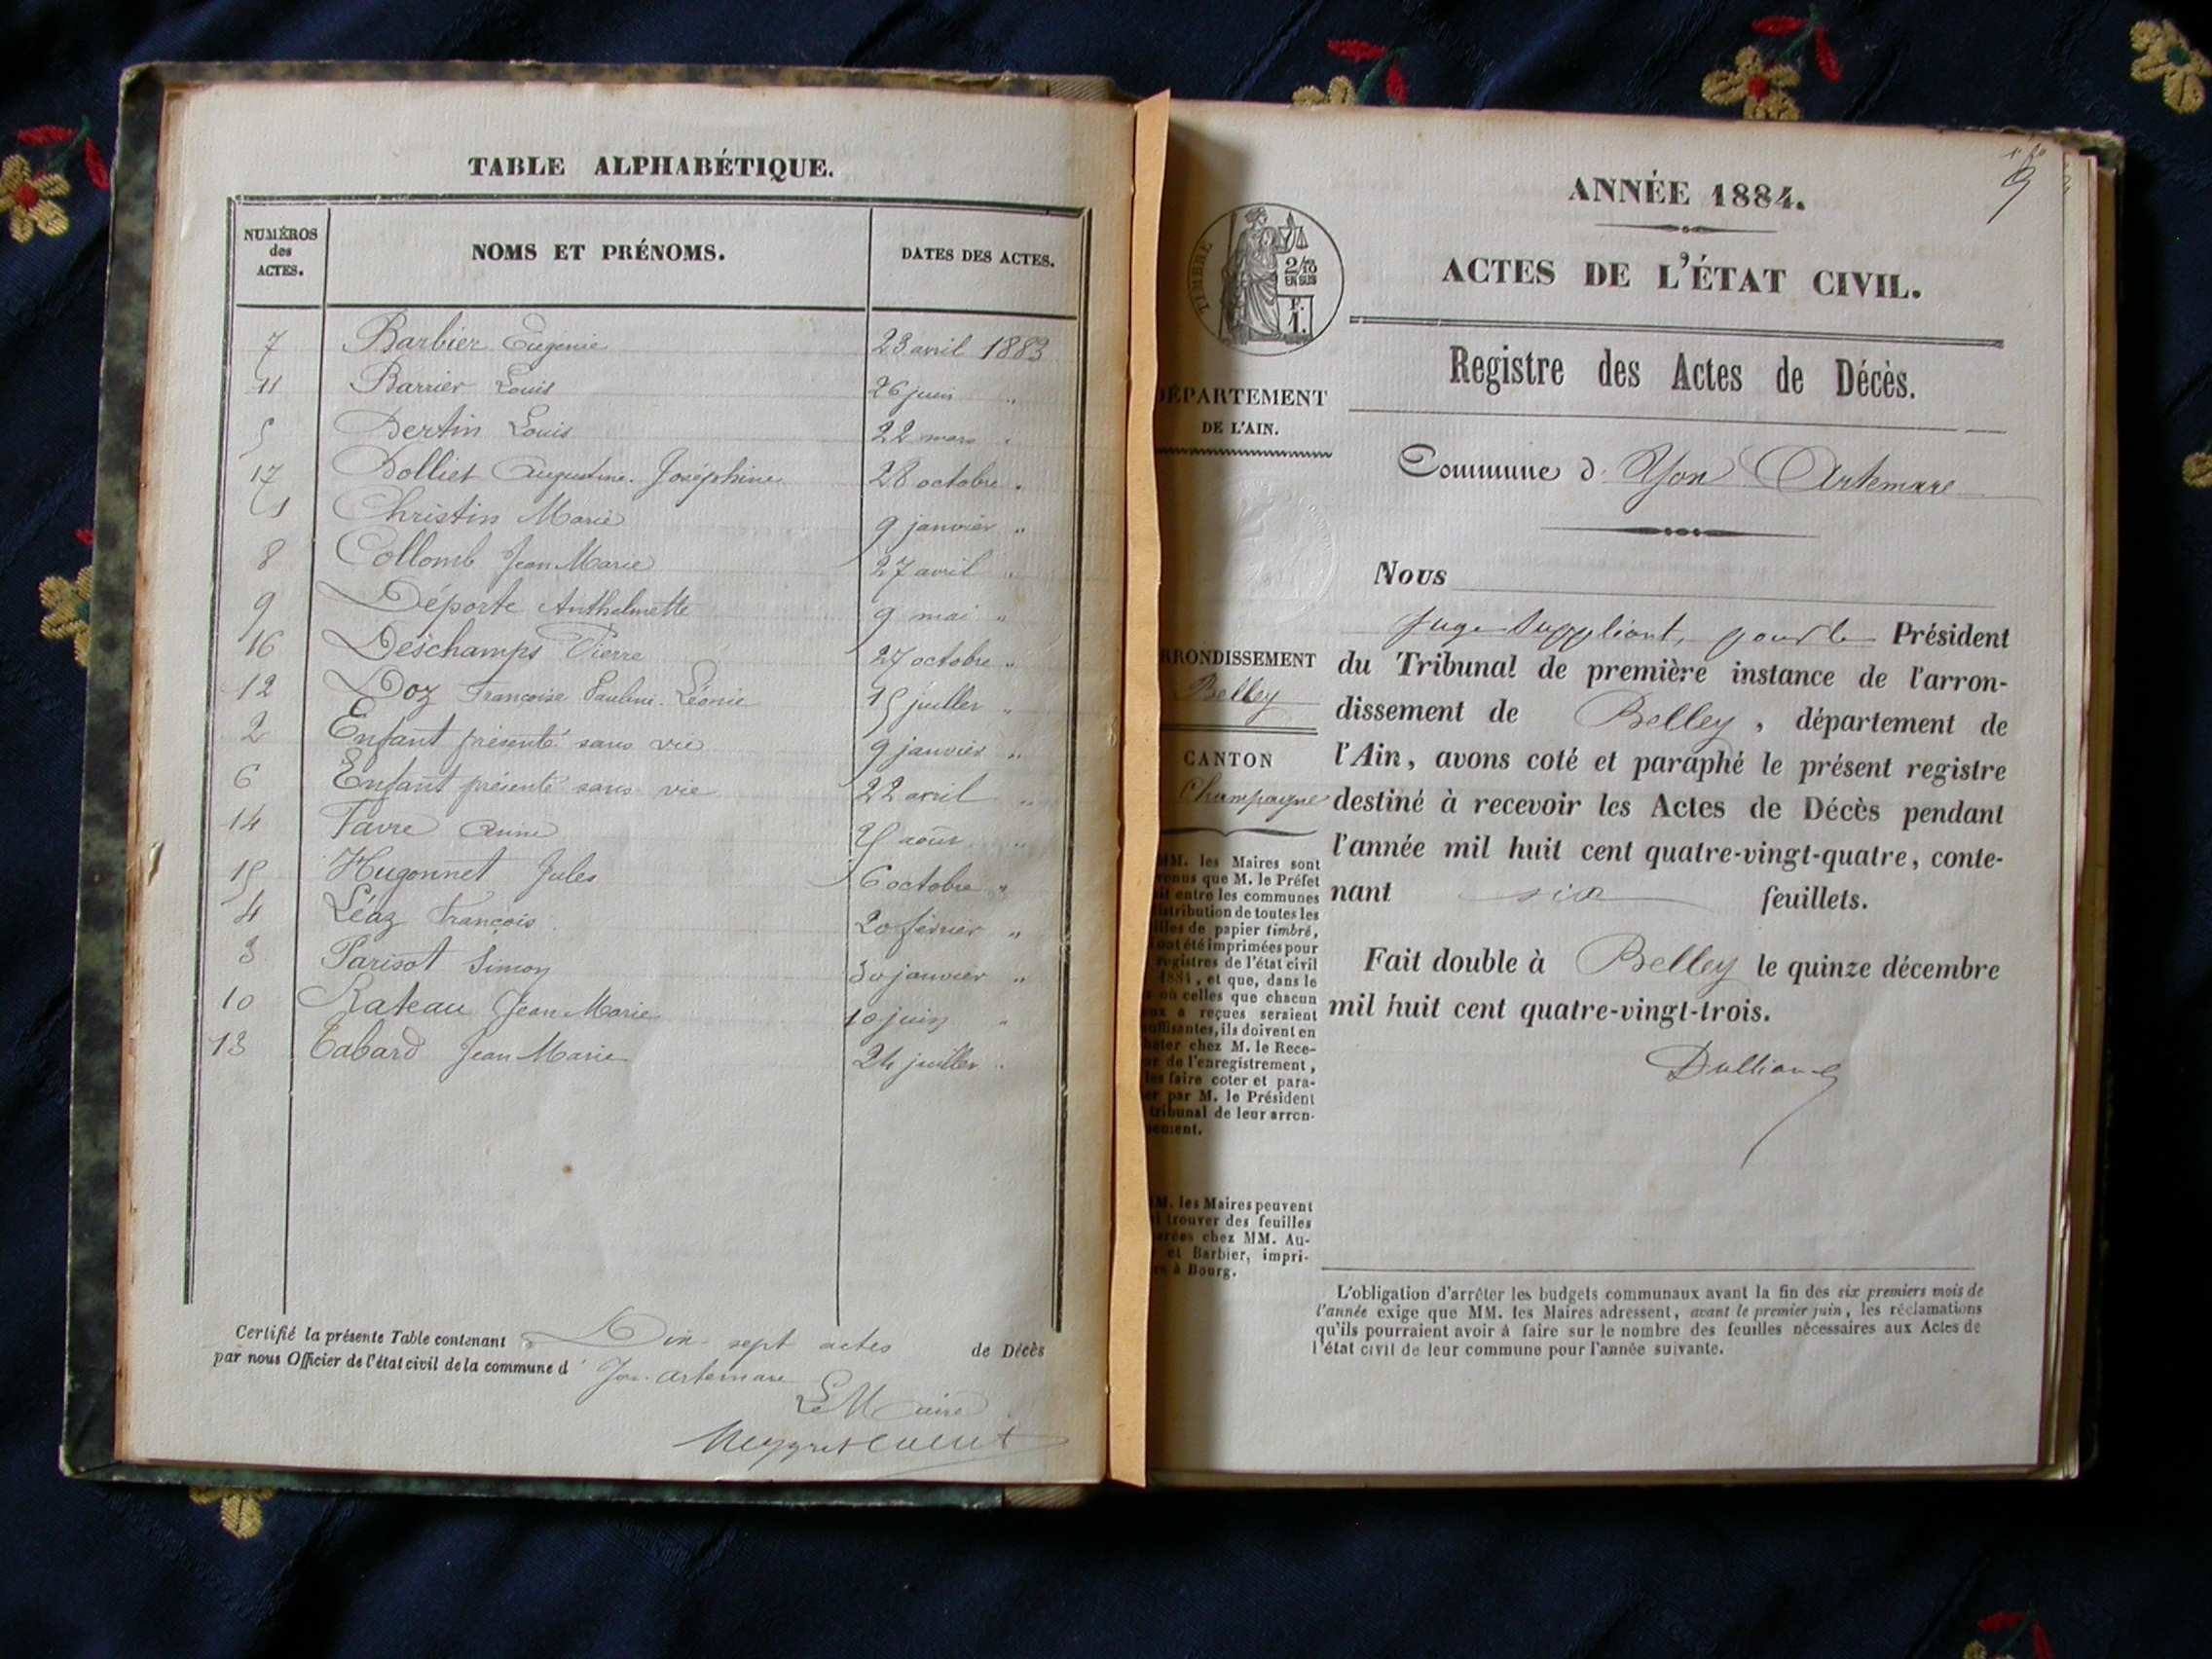 TABLE ALPHABÉTIQUE.
NUMÉROS des ACTES. NOMS ET PRÉNOMS. DATES DES ACTES.
7 Barbier Eugénie 23 avril 1883
11 Barrier Louis 26 juin "
5 Bertin Louis 22 mars "
17 Bolliet Augustine Joséphine 28 octobre "
1 Christin Marie 9 janvier "
8 Collomb Jean Marie 27 avril "
9 Déporte Anthelmette 9 mai "
16 Deschamps Pierre 27 octobre "
12 Doz Françoise Léonie 15 juillet "
2 Enfant présenté sans vie 9 janvier "
6 Enfant présenté sans vie 22 avril "
14 Favre août "
15 Hugonnet Jules 6 octobre "
4 Léaz François 20 février "
3 Parisot Simon 30 janvier "
10 Rateau Jean Marie 10 juin "
13 Tabard Jean Marie 24 juillet "
Certifié la présente Table contenant Dix-sept actes de Décès
par nous Officier de l'état civil de la commune d' Yon-Artemare
Le Maire
ANNÉE 1884.
ACTES DE L'ÉTAT CIVIL.
TIMBRE
2/10
EN SUS
F.
1.
Registre des Actes de Décès.
DÉPARTEMENT
DE L'AIN.
Commune d' Yon Artemare
Nous
Juge Suppléant, pour le Président
du Tribunal de première instance de l'arron-
dissement de Belley, département de
l'Ain, avons coté et paraphé le présent registre
destiné à recevoir les Actes de Décès pendant
l'année mil huit cent quatre-vingt-quatre, conte-
nant six feuillets.
Fait double à Belley le quinze décembre
mil huit cent quatre-vingt-trois.
ARRONDISSEMENT
Belley
CANTON
Champagne
MM. les Maires sont
que M. le Préfet
entre les communes
distribution de toutes les
de papier timbré,
ont été imprimées pour
registres de l'état civil
1884, et que, dans le
où celles que chacun
a reçues seraient
insuffisantes, ils doivent en
chez M. le Rece-
de l'enregistrement,
les faire coter et para-
par M. le Président
tribunal de leur arron-
MM. les Maires peuvent
trouver des feuilles
chez MM. Au-
et Barbier, impri-
à Bourg.
L'obligation d'arrêter les budgets communaux avant la fin des six premiers mois de
l'année exige que MM. les Maires adressent, avant le premier juin, les réclamations
qu'ils pourraient avoir à faire sur le nombre des feuilles nécessaires aux Actes de
l'état civil de leur commune pour l'année suivante.